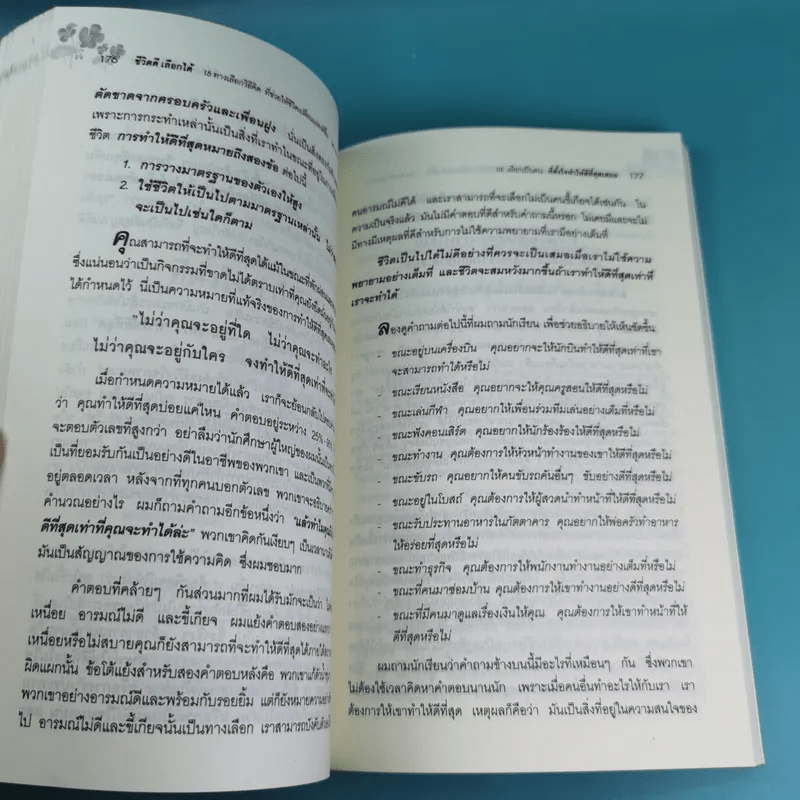 176 ชีวิตดี เลือกได้ 18 ทางเลือกวิธีคิด
ตัดขาดจากครอบครัวและเพื่อนฝูง นั่นเป็นสิ่งที่
เพราะการกระทำเหล่านั้นเป็นสิ่งที่เราทำในขณะที่
ชีวิต การทำให้ดีที่สุดหมายถึงสองข้อ ต่อไปนี้
1. การวางมาตรฐานของตัวเองให้สูง
2. ใช้ชีวิตให้เป็นไปตามมาตรฐานเหล่านั้น
จะเป็นไปเช่นใดก็ตาม
คุณสามารถที่จะทำให้ดีที่สุดได้แม้ในขณะที่พักผ่อน
ซึ่งแน่นอนว่าเป็นกิจกรรมที่ขาดไม่ได้ตราบเท่าที่คุณยังยึดมั่น
ได้กำหนดไว้ นี่เป็นความหมายที่แท้จริงของการทำให้ดีที่สุด
"ไม่ว่าคุณจะอยู่ที่ใด ไม่ว่าคุณจะทำอะไร
ไม่ว่าคุณจะอยู่กับใคร จงทำให้ดีที่สุดเท่าที่
เมื่อกำหนดความหมายได้แล้ว เราก็จะย้อนกลับไป
ว่า คุณทำให้ดีที่สุดบ่อยแค่ไหน คำตอบอยู่ระหว่าง 25%-
จะตอบตัวเลขที่สูงกว่า อย่าลืมว่านักศึกษาผู้ใหญ่ของผมนั้น
เป็นที่ยอมรับกันเป็นอย่างดีในอาชีพของพวกเขา และเป็นพวกที่
อยู่ตลอดเวลา หลังจากที่ทุกคนบอกตัวเลข พวกเขาจะอธิบาย
คำนวณอย่างไร ผมก็ถามคำถามอีกข้อหนึ่งว่า "แล้วทำไม
ดีที่สุดเท่าที่คุณจะทำได้ล่ะ" พวกเขาคิดกันเงียบๆ เป็นเวลา
มันเป็นสัญญาณของการใช้ความคิด ซึ่งผมชอบมาก
คำตอบที่คล้ายๆ กันส่วนมากที่ผมได้รับมักจะเป็นว่า
เหนื่อย อารมณ์ไม่ดี และขี้เกียจ ผมแย้งคำตอบสองอย่างแรก
เหนื่อยหรือไม่สบายคุณก็ยังสามารถที่จะทำให้ดีที่สุดได้ภายใต้
ผิดแผกนั้น ข้อโต้แย้งสำหรับสองคำตอบหลังคือ พวกเขา
พวกเขาอย่างอารมณ์ดีและพร้อมกับรอยยิ้ม แต่ก็ยังหมายความ
ไป อารมณ์ไม่ดีและขี้เกียจนั้นเป็นทางเลือก เราสามารถบังคับ
เลือกเป็นคน ที่ตั้งใจทำให้ดีที่สุดเสมอ 177
คนอารมณ์ไม่ดีได้ และเราสามารถที่จะเลือกไม่เป็นคนขี้เกียจได้เช่นกัน ใน
ความเป็นจริงแล้ว มันไม่มีคำตอบที่ดีสำหรับคำถามนี้หรอก ไม่เคยมีและจะไม่
มีทางมีเหตุผลที่ดีสำหรับการไม่ใช้ความพยายามที่เรามีอย่างเต็มที่
ชีวิตเป็นไปได้ไม่ดีอย่างที่ควรจะเป็นเสมอเมื่อเราไม่ใช้ความ
พยายามอย่างเต็มที่ และชีวิตจะสมหวังมากขึ้นถ้าเราทำให้ดีที่สุดเท่าที่
เราจะทำได้
ลองดูคำถามต่อไปนี้ที่ผมถามนักเรียน เพื่อช่วยอธิบายให้เห็นชัดขึ้น
- ขณะอยู่บนเครื่องบิน คุณอยากจะให้นักบินทำให้ดีที่สุดเท่าที่เขา
จะสามารถทำได้หรือไม่
- ขณะเรียนหนังสือ คุณอยากจะให้คุณครูสอนให้ดีที่สุดหรือไม่
- ขณะเล่นกีฬา คุณอยากให้เพื่อนร่วมทีมเล่นอย่างเต็มที่หรือไม่
- ขณะฟังคอนเสิร์ต คุณอยากให้นักร้องร้องให้ดีที่สุดหรือไม่
- ขณะทำงาน คุณต้องการให้หัวหน้าทำงานของเขาให้ดีที่สุดหรือไม่
- ขณะขับรถ คุณอยากให้คนขับรถคันอื่นๆ ขับอย่างดีที่สุดหรือไม่
- ขณะอยู่ในโบสถ์ คุณต้องการให้ผู้สวดนำทำหน้าที่ให้ดีที่สุดหรือไม่
- ขณะรับประทานอาหารในภัตตาคาร คุณอยากให้พ่อครัวทำอาหาร
ให้อร่อยที่สุดหรือไม่
- ขณะทำธุรกิจ คุณต้องการให้พนักงานทำงานอย่างเต็มที่หรือไม่
- ขณะที่คนมาซ่อมบ้าน คุณต้องการให้เขาทำงานอย่างดีที่สุดหรือไม่
- ขณะที่มีคนมาดูแลเรื่องเงินให้คุณ คุณต้องการให้เขาทำหน้าที่ให้
ดีที่สุดหรือไม่
ผมถามนักเรียนว่าคำถามข้างบนนี้มีอะไรที่เหมือนๆ กัน ซึ่งพวกเขา
ไม่ต้องใช้เวลาคิดหาคำตอบนานนัก เพราะเมื่อคนอื่นทำอะไรให้กับเรา เรา
ต้องการให้เขาทำให้ดีที่สุด เหตุผลก็คือว่า มันเป็นสิ่งที่อยู่ในความสนใจของ